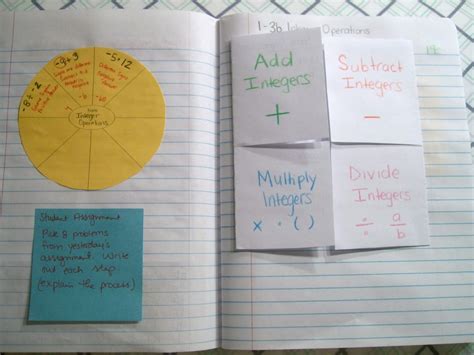 -8+-2
-9+9
-5+12
Integer
Operations
Student Assignment
Pick 8 problems
from yesterday's
assignment. Write
out each step.
(explain the process)
1-3b Integer Operations
Add
Integers
+
Subtract
Integers
−
Multiply
Integers
× · ( )
Divide
Integers
÷ a/b